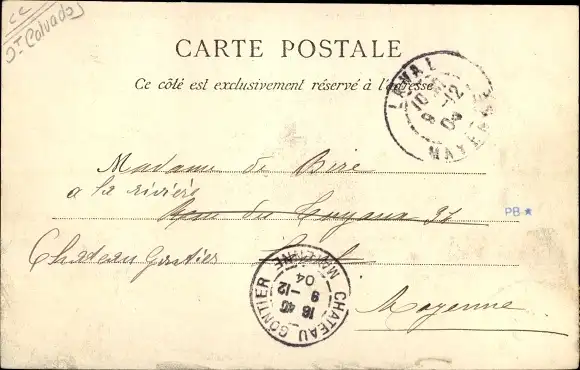 CC
Dt Calvados
CARTE POSTALE
Ce côté est exclusivement réservé à l'adresse
LAVAL
10
9 -12
04
MAYENNE
Madame de Biré
a la rivière
Rue du 37
PB ★
Chateau gontier Laval
CHATEAU GONTIER
16 45
9 -12
04
MAYENNE
Mayenne